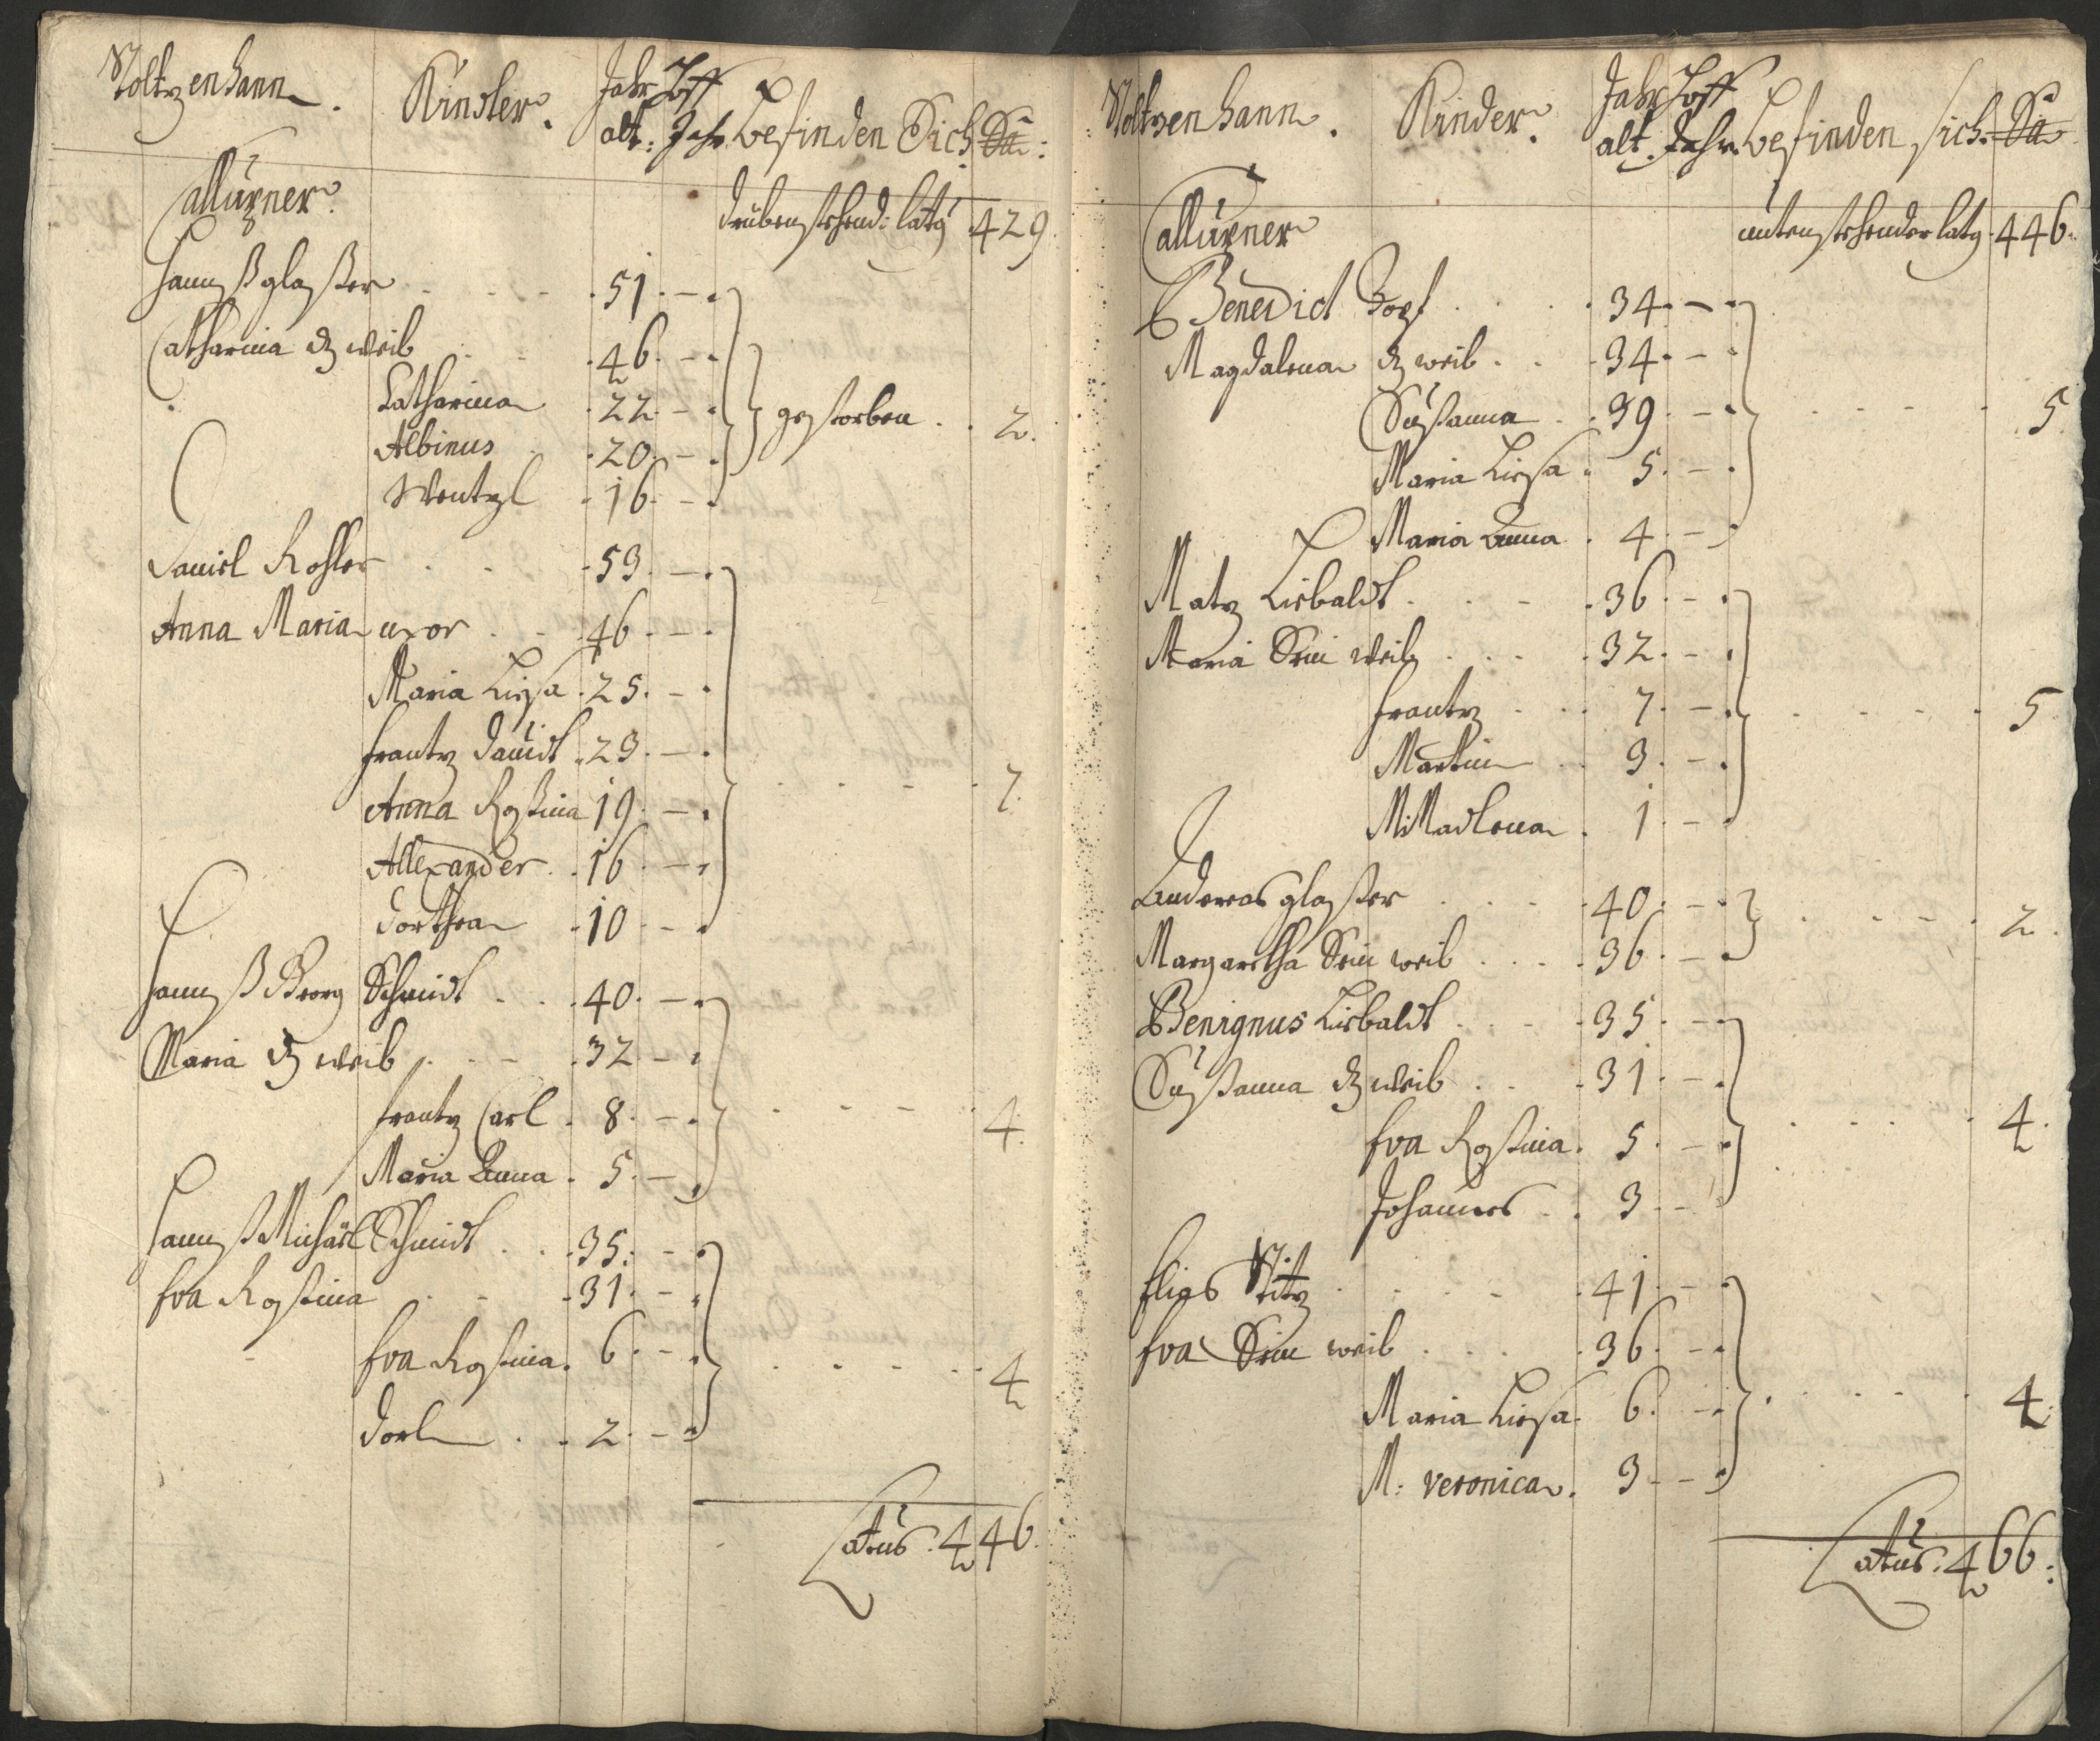 Stoltzenhann. Kinder. Jahr alt: Hoff Jahr. befinden Sich Sa:
Callürner.
drübenstehend: latq 429.
Hannß glaßer 51. —
Catharina dz weib 46. —
Catharina 22 —
Albinus 20. — gestorben 2.
Wentzl 16. —
Daniel Rohler 53. —
Anna Maria uxor 46. —
Maria Liesa 25. —
frantz Davidt 23. —
Anna Roßina 19. — 7.
Allexander 16. —
Dorthea 10 —
Hannß Georg Schmidt 40. —
Maria dz weib 32 —
frantz Carl 8. — 4.
Maria Anna 5. —
Hannß Michäel Schmidt 35. —
Eva Rosina 31. —
Eva Rosina 6. — 4
Dorl 2. —
Latus. 446.
Stoltzenhann. Kinder. Jahr alt. Hoff Jahr. befinden sich. Sa
Callürner
untenstehender latq. 446.
Benedict 34. —
Magdalena dz weib 34. —
Sußanna 39. — 5
Maria Liesa 5. —
Maria Anna 4. —
Matz Liebaldt 36. —
Maria Sein weib 32. —
frantz 7. — 5
Martin 3. —
M: Madlena 1. —
Andereas glaßer 40. — 2.
Margaretha Sein weib 36. —
Benignus Liebaldt 35. —
Sußanna dz weib 31. —
Eva Rosina 5. — 4.
Johannes 3. —
Elias Stitz 41. —
Eva Sein weib 36. —
Maria Liesa 6. — 4.
M: Veronica 3 —
Latus. 466.